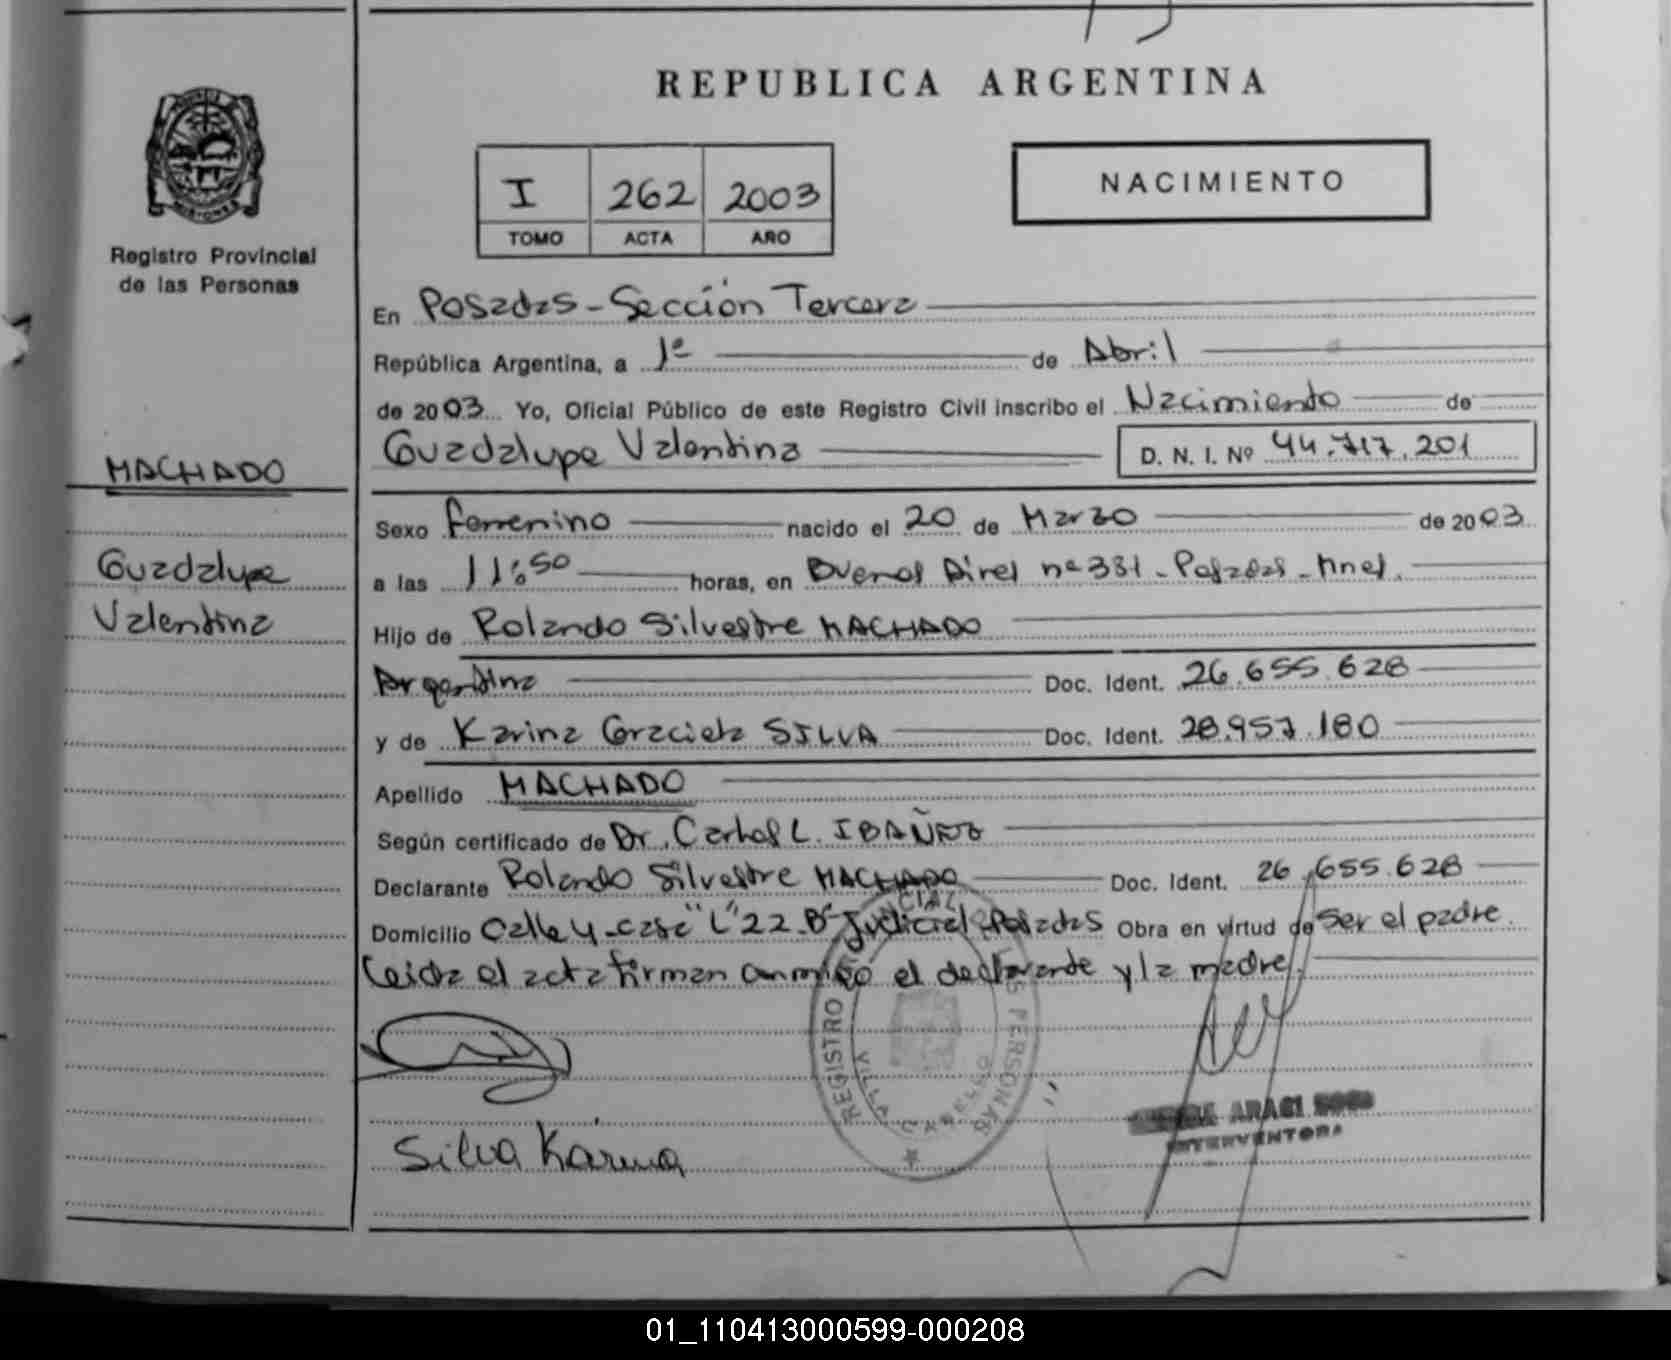 REPUBLICA ARGENTINA
PROVINCIA DE MISIONES
Registro Provincial
de las Personas
I 262 2003
TOMO ACTA AÑO
NACIMIENTO
En Posadas - Sección Tercera
República Argentina, a 1º de Abril
de 2003 Yo, Oficial Público de este Registro Civil inscribo el Nacimiento de
Guadalupe Valentina D. N. I. Nº 44.717.201
MACHADO
Guadalupe
Valentina
Sexo femenino nacido el 20 de Marzo de 2003
a las 11:50 horas, en Buenos Aires nº 331 - Posadas - Mnes.
Hijo de Rolando Silvestre MACHADO
Argentina Doc. Ident. 26.655.628
y de Karina Graciela SILVA Doc. Ident. 28.957.180
Apellido MACHADO
Según certificado de Dr. Carlos L. IBAÑEZ
Declarante Rolando Silvestre MACHADO Doc. Ident. 26.655.628
Domicilio Calle 4 - casa "L" 22 - Bº Judicial - Posadas Obra en virtud de ser el padre.
Leida el acta firman conmigo el declarante y la madre.
REGISTRO PROVINCIAL DE LAS PERSONAS
VILLA CABELLO
ARACI SOSA
INTERVENTORA
Silva Karina
01_110413000599-000208